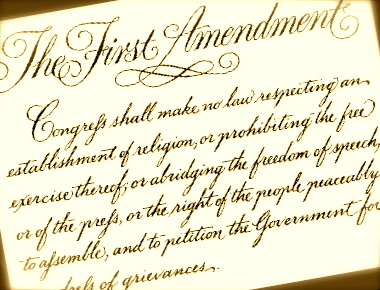 The First Amendment
Congreſs shall make no law respecting an
establishment of religion, or prohibiting the free
exercise thereof; or abridging the freedom of speech,
or of the preſs, or the right of the people peaceably
to aſsemble, and to petition the Government for
dreſs of grievances.